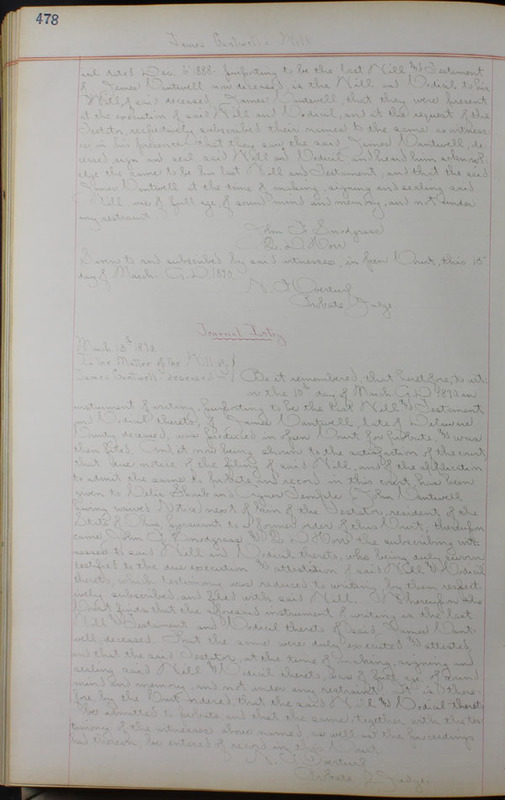 478
James Cantwell's Will
and dated Dec. 5 1888. purporting to be the last Will & Testament
of James Cantwell now deceased, is the Will and Codicil to his
Will, of said deceased James Cantwell, that they were present
at the execution of said Will and Codicil, and at the request of the
Testator, respectively subscribed their names to the same as witness-
es in his presence. That they saw the said James Cantwell, de-
ceased, sign and seal said Will and Codicil and heard him acknowl-
edge the same to be his last Will and Testament, and that the said
James Cantwell at the time of making, signing and sealing said
Will, was of full age, of sound mind and memory, and not under
any restraint.
John F. Snodgrass
Sworn to and subscribed by said witnesses, in open Court, this 13
day of March A.D. 1890.
Probate Judge
Journal Entry
March 13th 1890
In the Matter of the Will of
James Cantwell deceased
Be it remembered, that heretofore, to wit:
on the 10th day of March A.D. 1890 an
instrument of writing, purporting to be the Last Will & Testament
and Codicil thereto, of James Cantwell, late of Delaware
County deceased, was produced in open Court for Probate, & was
then filed. And it now being shown to the satisfaction of the court
that due notice of the filing of said Will, and of the application
to admit the same to probate and record in this court has been
given to Temple John Cantwell
having waived Notice next of kin of the Testator, resident of the
State of Ohio, pursuant to a former order of this Court, thereupon
came John F. Snodgrass & the subscribing wit-
nesses to said Will and Codicil thereto, who being duly sworn
testified to the due execution & attestation of said Will & Codicil
thereto, which testimony was reduced to writing, by them respect-
ively subscribed, and filed with said Will. Whereupon the
Court finds that the aforesaid instrument of writing is the last
Will & Testament and Codicil thereto of said James Cant-
well deceased. That the same were duly executed & attested,
and that the said Testator, at the time of making, signing and
sealing said Will & Codicil thereto, was of full age, of sound
mind and memory, and not under any restraint. It is there-
fore by the Court ordered, that the said Will & Codicil thereto
be admitted to probate and that the same, together with the tes-
timony of the witnesses above named, as well as the proceedings
had thereon be entered of record in this Court
Probate Judge.